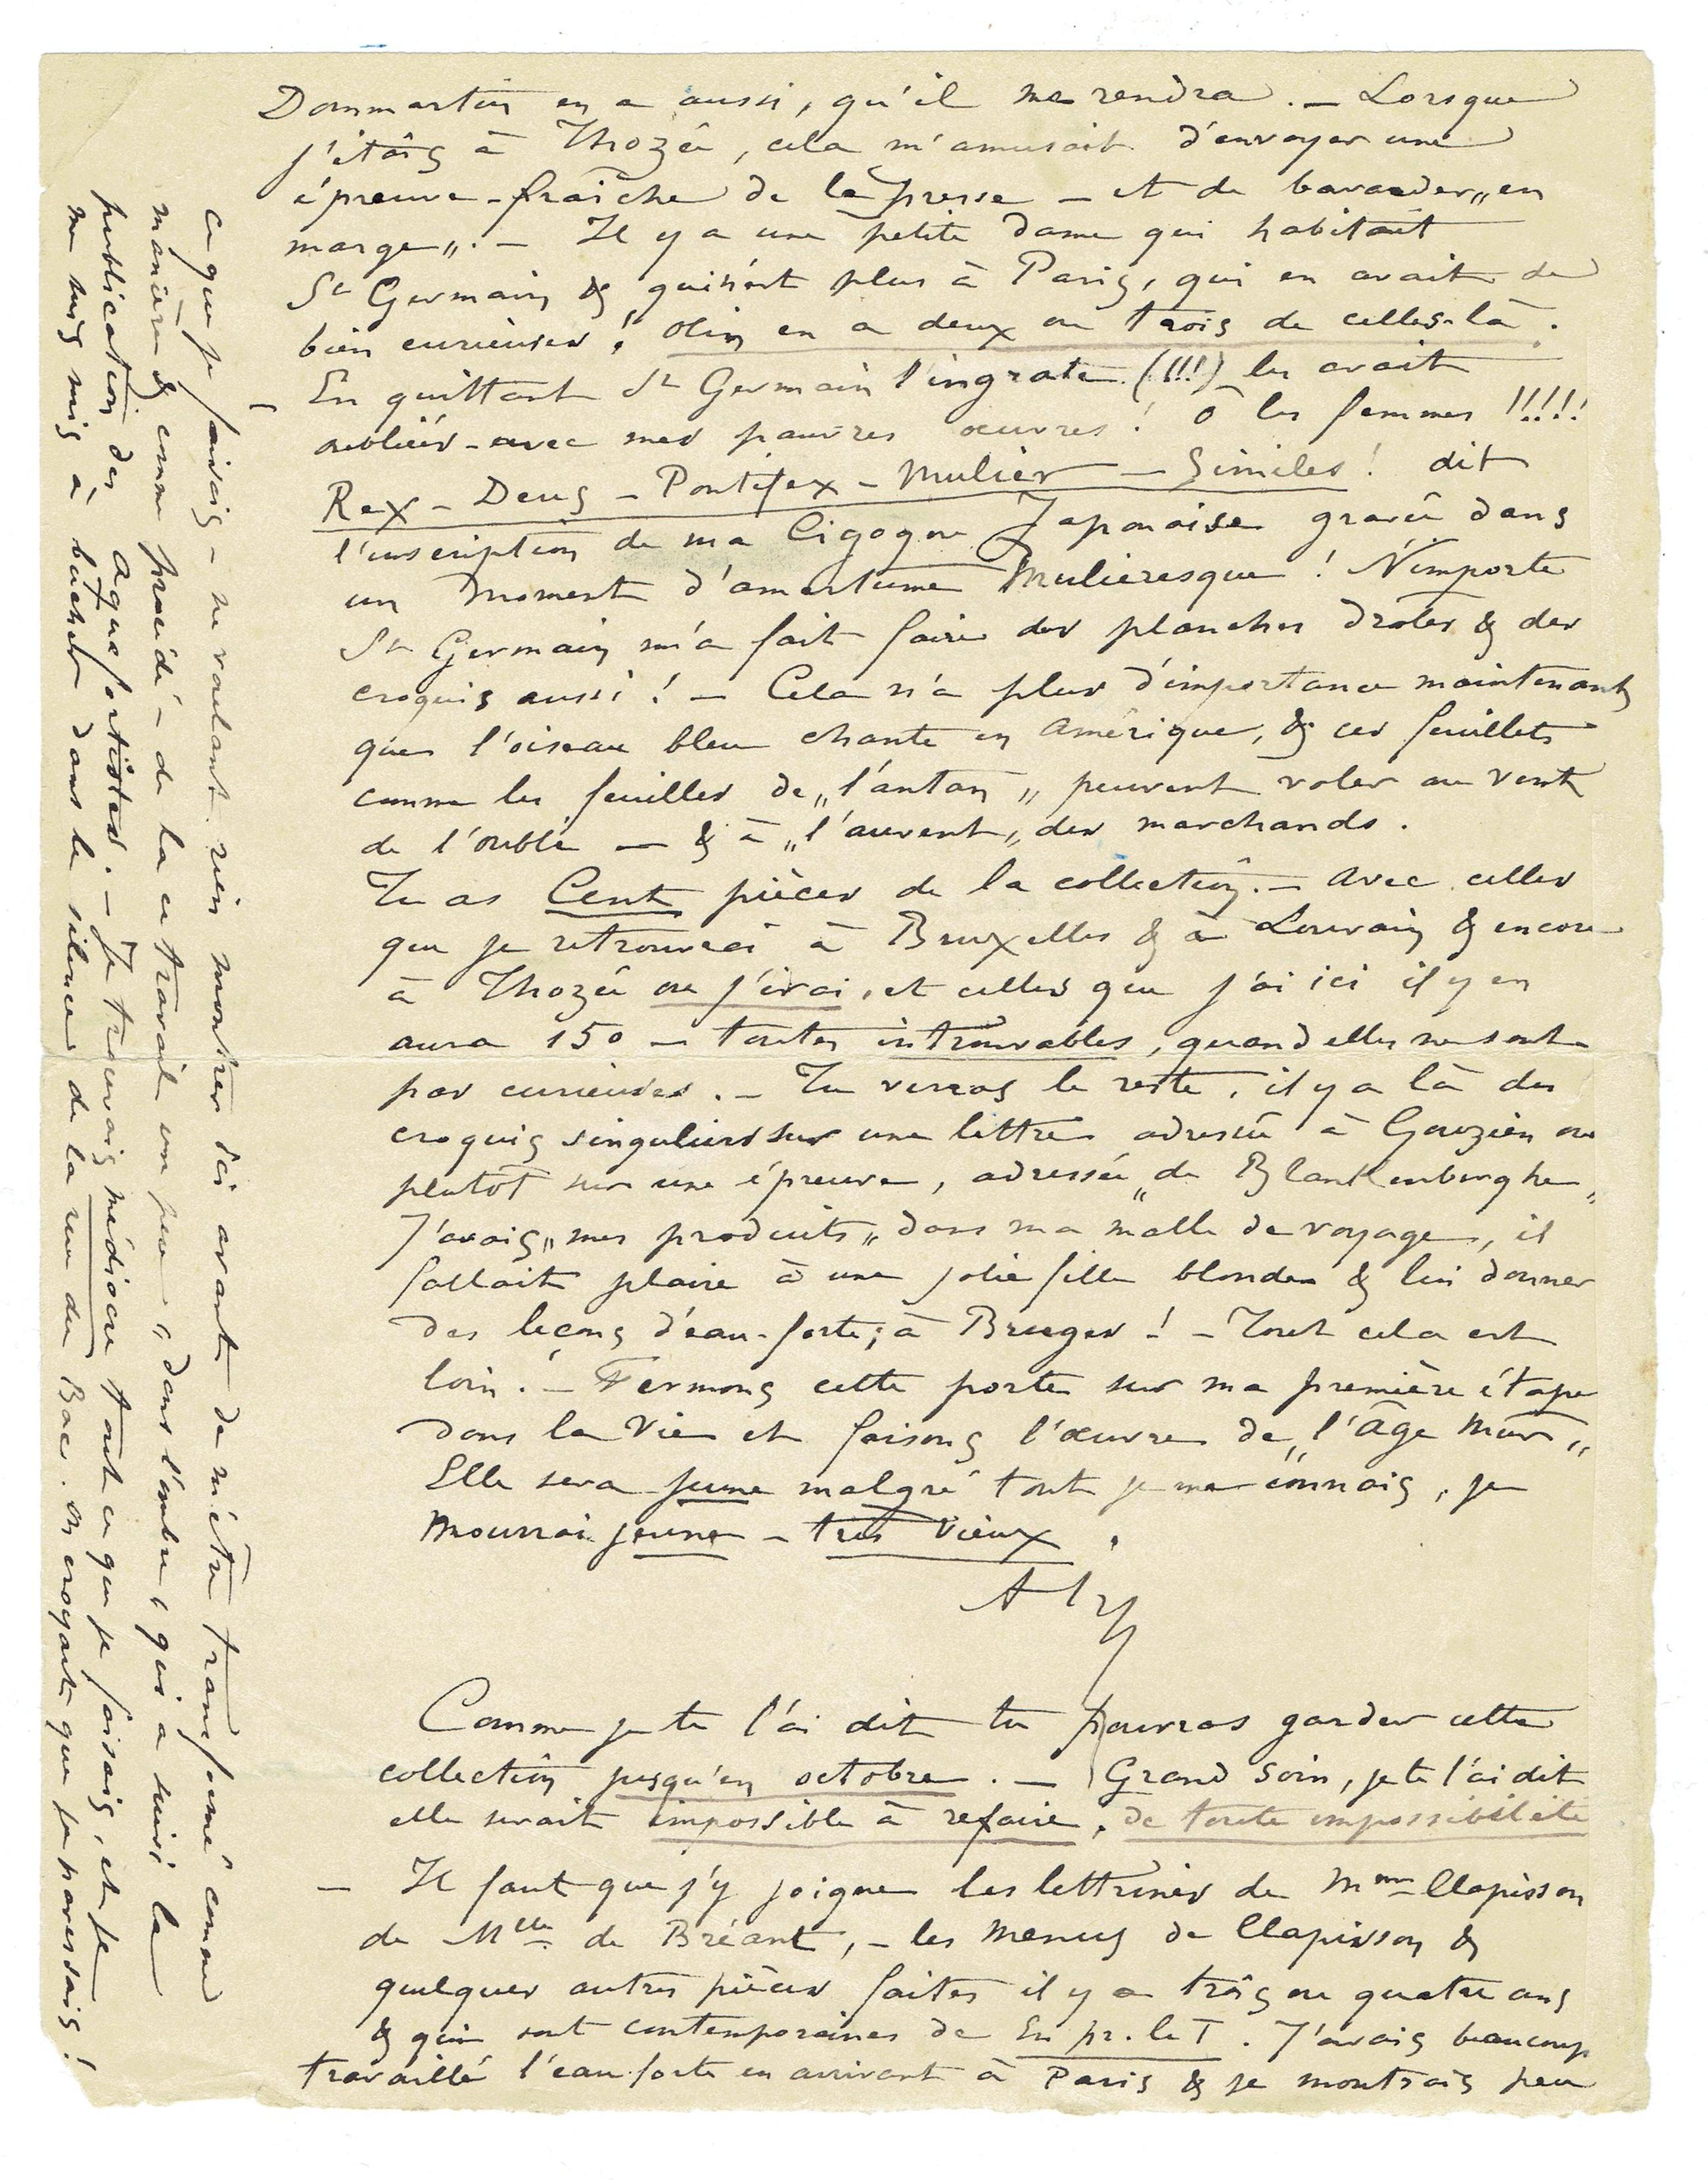 Dommartin en a aussi, qu'il me rendra. — Lorsque
j'étais à Thozée, cela m'amusait d'envoyer une
épreuve - fraîche de la presse — et de bavarder „en
marge„. — Il y a une petite dame qui habitait
St Germain & qui n'est plus à Paris, qui en avait de
bien curieuses ! Olin en a deux ou trois de celles-là.
En quittant St Germain l'ingrate (!!!) les avait
oubliés - avec mes pauvres œuvres ! ô les femmes !!!!!
Rex - Deus - Pontifex - Mulier - Similes ! dit
l'inscription de ma Cigogne Japonaise gravée dans
un moment d'amertume Mulieresque ! N'importe
St Germain m'a fait faire des planches drôles & des
croquis aussi ! — Cela n'a plus d'importance maintenant
que l'oiseau bleu chante en Amérique, & ces feuillets
comme les feuilles de „l'antan„ peuvent voler au vent
de l'oubli — & à „l'auvent„ des marchands.
Tu as Cent pièces de la collection. — Avec celles
que je retrouverai à Bruxelles & à Louvain & encore
à Thozée ou j'irai, et celles que j'ai ici il y en
aura 150 — toutes introuvables, quand elles ne sont
pas curieuses. — Tu verras le reste, il y a là des
croquis singuliers sur une lettre adressée à Gouzien ou
plutôt sur une épreuve, adressée „de Blankenberghe„
J'avais „mes produits„ dans ma malle de voyage, il
fallait plaire à une jolie fille blonde & lui donner
des leçons d'eau-forte, à Bruges ! — Tout cela est
loin ! — Fermons cette porte sur ma première étape
dans la Vie et faisons l'œuvre de „l'Âge Mûr„
Elle sera jeune malgré tout je me connais, je
mourrai jeune - très vieux.
Comme je te l'ai dit tu pourras garder cette
collection jusqu'en octobre. — Grand soin, je te l'ai dit
elle serait impossible à refaire, de toute impossibilité
— Il faut que j'y joigne les lettrines de Mme Clapisson
de Mlle de Bréant, — les Menus de Clapisson &
quelques autres pièces faites il y a trois ou quatre ans
& qui sont contemporaines de En pr. le T. J'avais beaucoup
travaillé l'eau forte en arrivant à Paris & je montrais peu
ce que je faisais — ne voulant rien montrer ici avant de m'être transformé comme
manière & comme procédé — de là ce travail un peu, dans l'ombre, qui a suivi la
publication des aquafortistes. — Je trouvais médiocre tout ce que je faisais, et je
me suis mis à bûcher dans le silence de la rue du Bac. On croyait que je paressais !